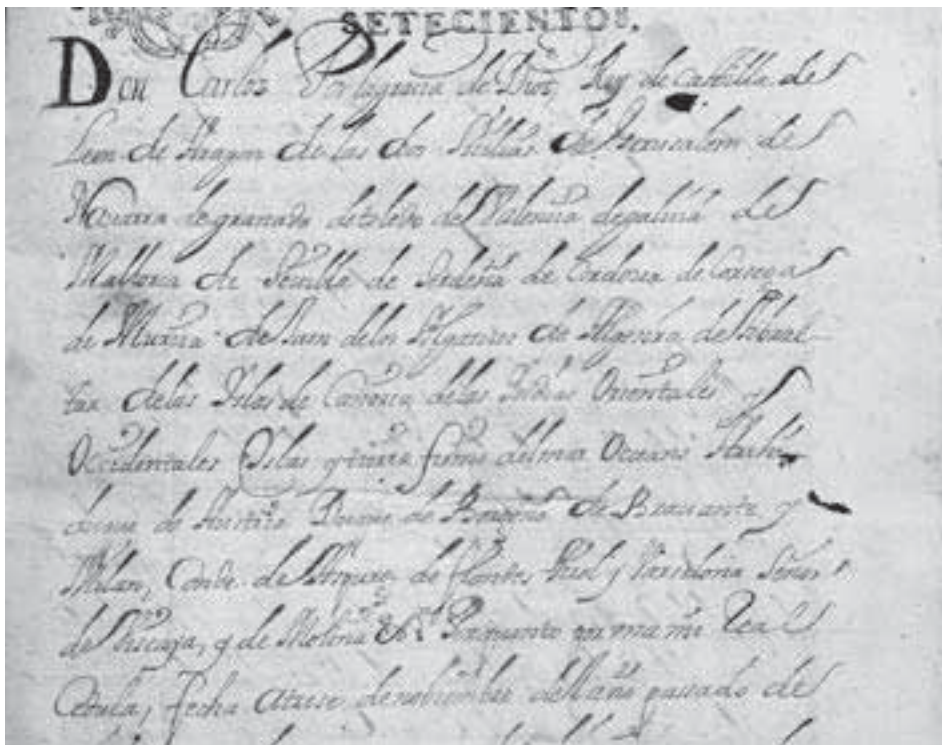 SETECIENTOS.
Don Carlos Por la gracia de Dios, Rey de Castilla de
Leon de Aragon de las dos Sicilias de Jerusalem de
Navarra de granada de toledo de Valencia de galicia de
Mallorca de Sevilla de Serdeña de Cordova de Corcega
de Murcia de Jaen de los Algarves de Algecira de Gibral-
tar de las Yslas de Canaria de las Yndias Orientales y
Occidentales Yslas y tierra firme del mar Oceano Archi-
duque de Austria Duque de Borgoña de Bravante y
Milan, Conde de de flandes tirol y Barcelona Señor
de Viscaya, y de Molina &c. Por quanto por una mi Real
Cedula, fecha a trese de nobiembre del año passado de